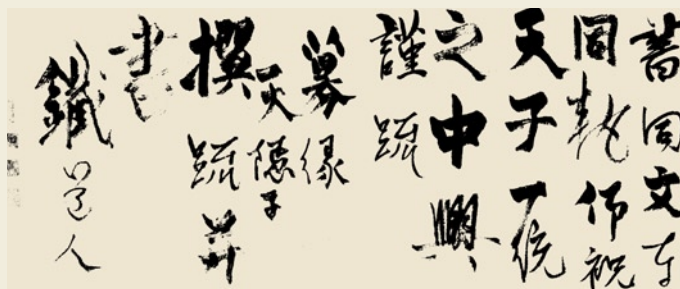 書同文車
同軌仰祝
天子一統
之中興
謹疏
募緣
隱子
撰疏并
書
鐵道人